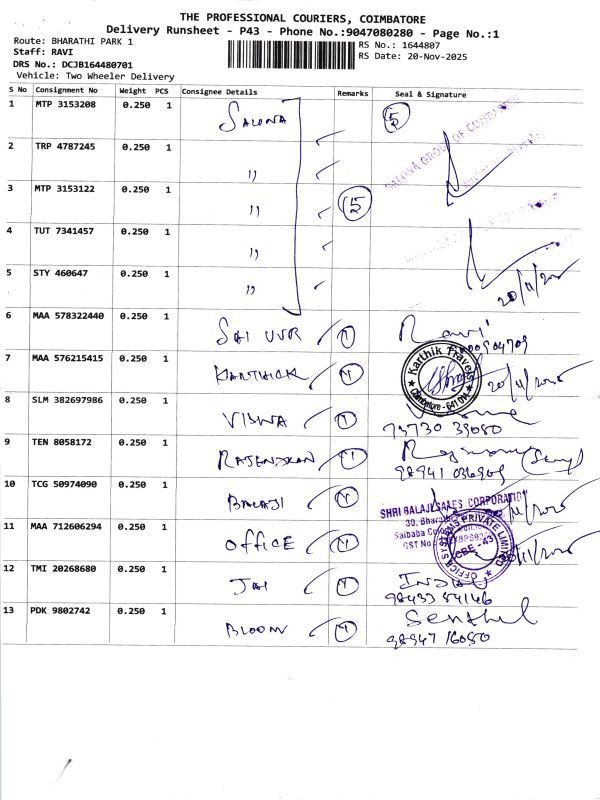 THE PROFESSIONAL COURIERS, COIMBATORE
Delivery Runsheet - P43 - Phone No.:9047080280 - Page No.:1
Route: BHARATHI PARK 1
RS No.: 1644807
Staff: RAVI
RS Date: 20-Nov-2025
DRS No.: DCJB164480701
Vehicle: Two Wheeler Delivery
S No Consignment No Weight PCS Consignee Details Remarks Seal & Signature
1 MTP 3153208 0.250 1 SALONA 5
2 TRP 4787245 0.250 1 ,,
3 MTP 3153122 0.250 1 ,, 5
4 TUT 7341457 0.250 1 ,,
5 STY 460647 0.250 1 ,, 20/11/2025
6 MAA 578322440 0.250 1 SAI UUR 1 Ravi
7 MAA 576215415 0.250 1 KARTHICK 1 Karthik Travels Coimbatore - 641 20/11/2025
8 SLM 382697986 0.250 1 VISWA 1
73730 39080
9 TEN 8058172 0.250 1 RAJENDRAN 1
10 TCG 50974090 0.250 1 BALAJI 1 SHRI BALAJI SALES CORPORATION
11 MAA 712606294 0.250 1 OFFICE 1 OFFICE SYSTEMS PRIVATE LIMITED CBE - 43
12 TMI 20268680 0.250 1 JAI 1
98433 84146
13 PDK 9802742 0.250 1 BLOOM 1 Senthil
98947 16050